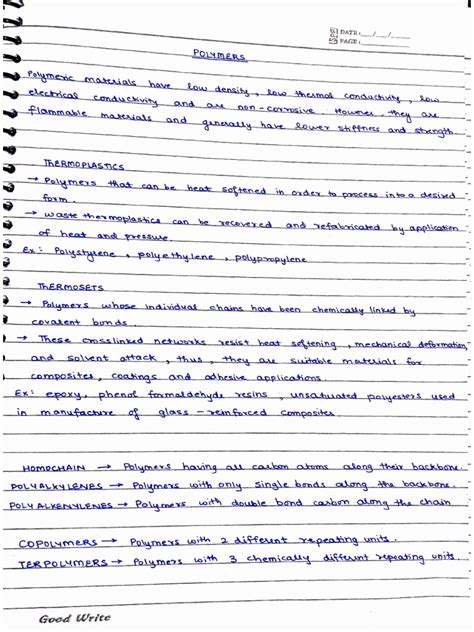 DATE: __/__/__
PAGE:
POLYMERS
Polymeric materials have low density, low thermal conductivity, low
electrical conductivity and are non-corrosive. However they are
flammable materials and generally have lower stiffness and strength.
THERMOPLASTICS
→ Polymers that can be heat softened in order to process into a desired
form.
→ Waste thermoplastics can be recovered and refabricated by application
of heat and pressure.
Ex: Polystyrene, polyethylene, polypropylene
THERMOSETS
→ Polymers whose individual chains have been chemically linked by
covalent bonds.
→ These crosslinked networks resist heat softening, mechanical deformation,
and solvent attack, thus, they are suitable materials for
composites, coatings and adhesive applications.
Ex: epoxy, phenol formaldehyde resins, unsaturated polyesters used
in manufacture of glass-reinforced composites.
HOMOCHAIN → Polymers having all carbon atoms along their backbone.
POLYALKYLENES → Polymers with only single bonds along the backbone.
POLYALKENYLENES → Polymers with double bond carbon along the chain
COPOLYMERS → Polymers with 2 different repeating units.
TERPOLYMERS → Polymers with 3 chemically different repeating units.
Good Write